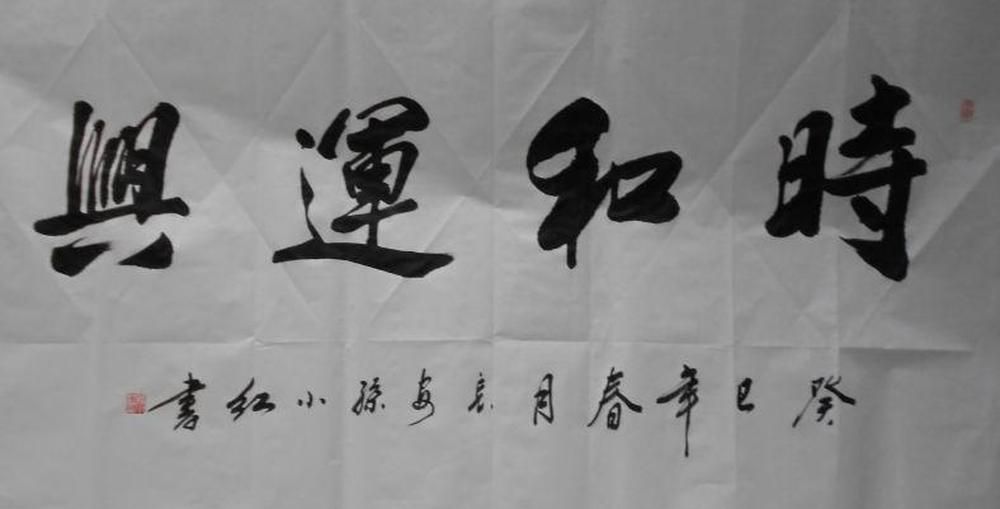 時和運興
癸巳年春月長安孫小紅書